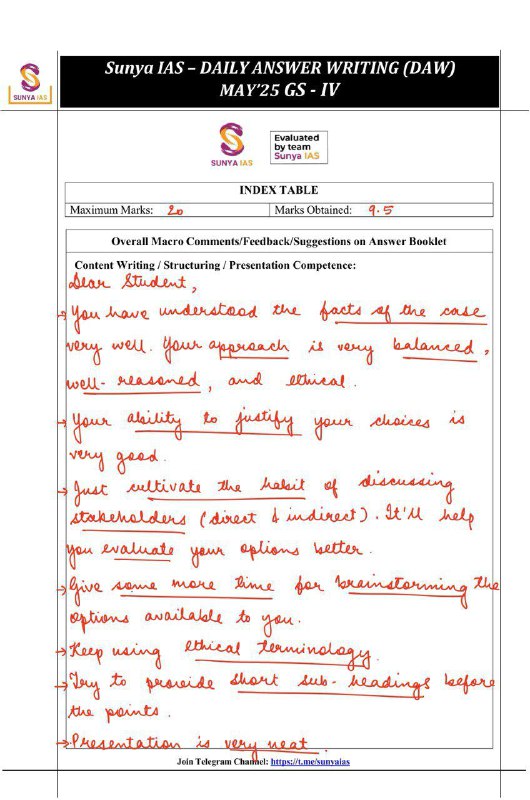 Sunya IAS – DAILY ANSWER WRITING (DAW)
MAY'25 GS - IV
S
SUNYA IAS
S
SUNYA IAS
Evaluated
by team
Sunya IAS
INDEX TABLE
Maximum Marks: 20
Marks Obtained: 9.5
Overall Macro Comments/Feedback/Suggestions on Answer Booklet
Content Writing / Structuring / Presentation Competence:
Dear Student,
→ You have understood the facts of the case
very well. Your approach is very balanced,
well-reasoned, and ethical.
→ Your ability to justify your choices is
very good.
→ Just cultivate the habit of discussing
stakeholders (direct & indirect). It'll help
you evaluate your options better.
→ Give some more time for brainstorming the
options available to you.
→ Keep using ethical terminology.
→ Try to provide short sub-headings before
the points.
→ Presentation is very neat.
Join Telegram Channel: https://t.me/sunyaias